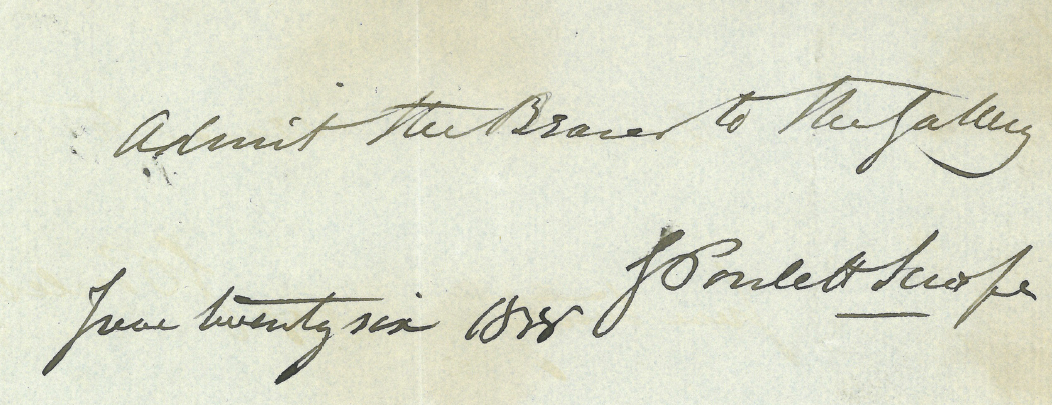 Admit the Bearer to the Gallery
G Poulett Scrope
June twenty six 1838